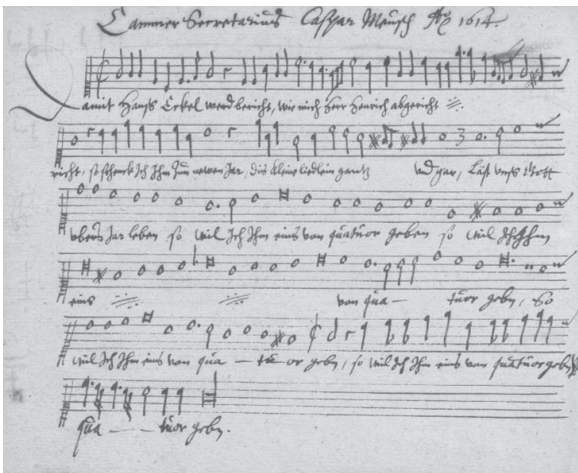 Cammer Secretarius Caspar Meusch Ao 1614.
Damit Hanß Eckel werd bericht, wie mich Herr Henrich abgericht
richt, so schenck Ich Ihm zum newen Jar, dis kleine liedlein gantz vnd gar, Läst vnß Gott
vbers Jar leben so wil Ich Ihm eins von quatuor geben so wil Ich Ihm
eins von qua – tuor gebn, so
wil Ich Ihm eins von qua – tu or gebn, so wil Ich Ihm eins von quatuor gebn
qua – – tuor gebn.